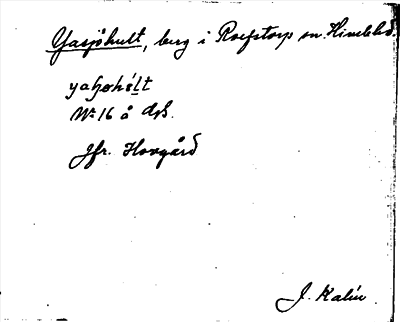 Yasjöhult, berg i Roestorp sn. Himleled.
yaʃøhúlt
Nr 16 å dps.
Jfr. Hovgård
J. Kalén